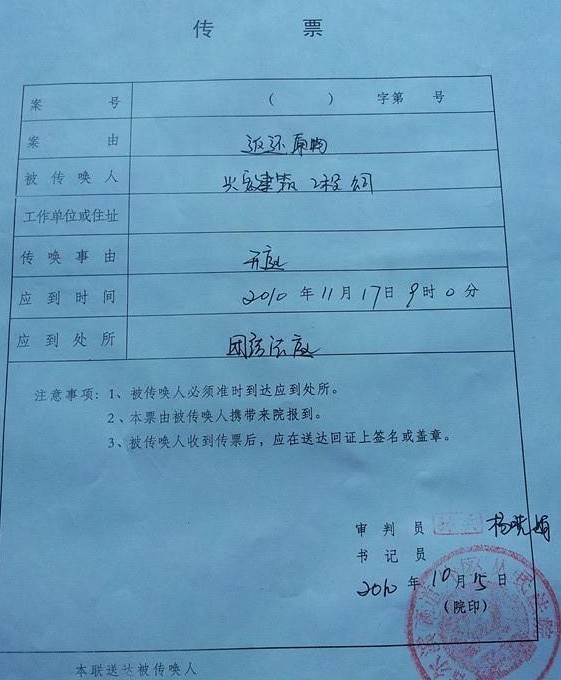 传 票
案 号 ( ) 字第 号
案 由 返还原物
被传唤人 兴宏建筑工程公司
工作单位或住址
传唤事由 开庭
应到时间 2010年11月17日9时0分
应到处所 团结法庭
注意事项：1、被传唤人必须准时到达应到处所。
2、本票由被传唤人携带来院报到。
3、被传唤人收到传票后，应在送达回证上签名或盖章。
审 判 员 杨晓娟
书 记 员
2010年10月15日
（院印）
人民法院
本联送达被传唤人